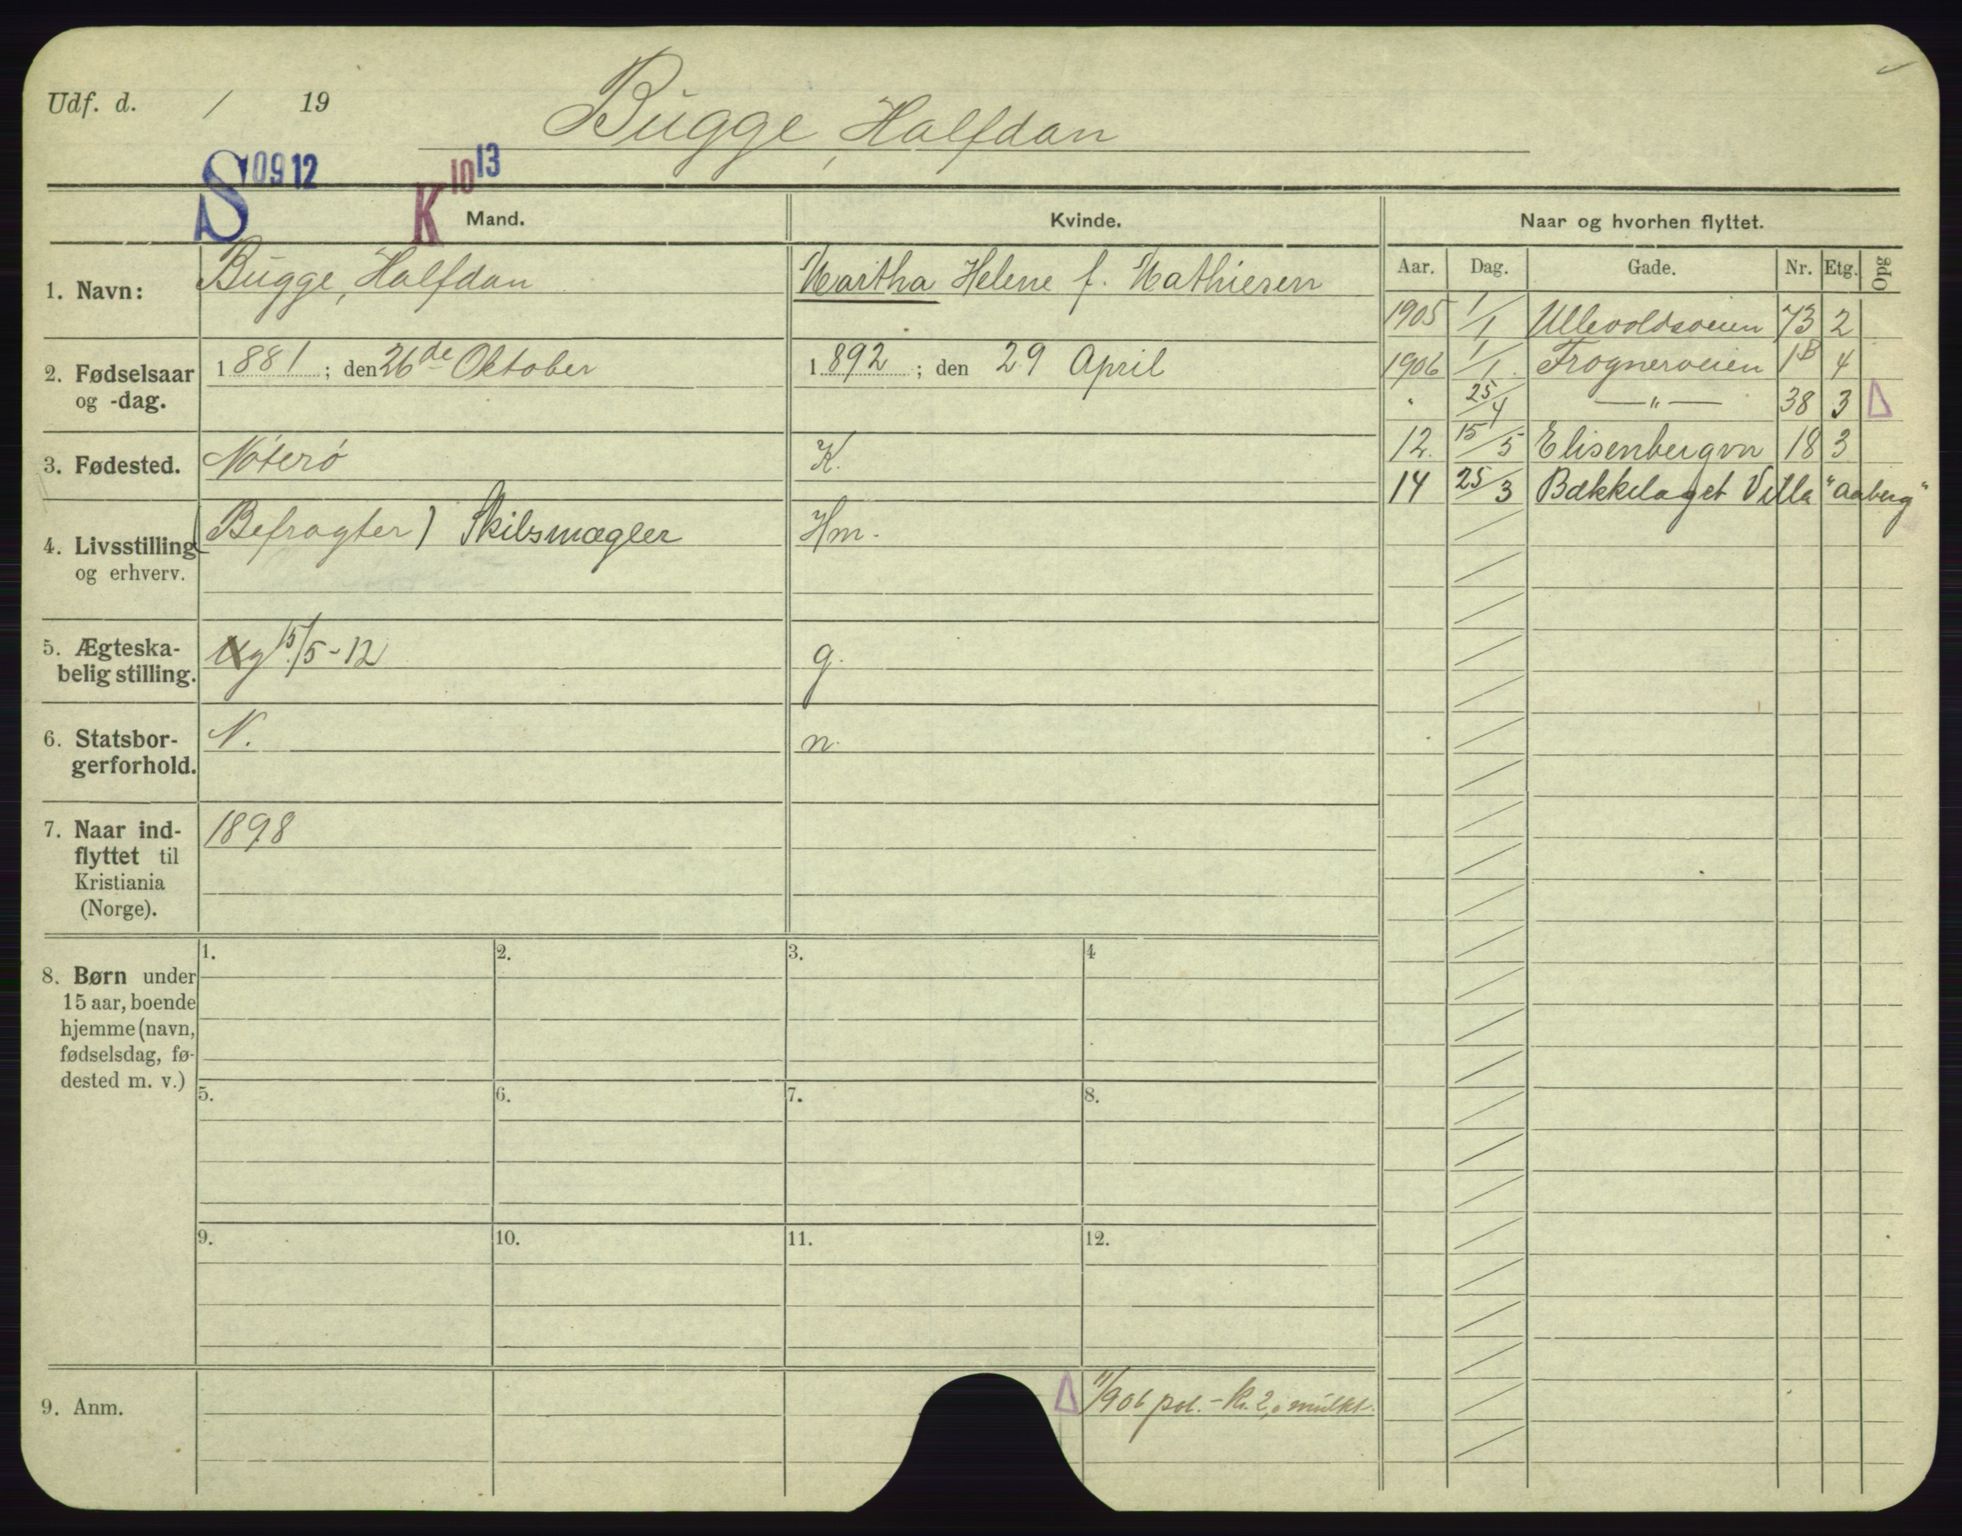 Udf. d. / 19
Bugge, Halfdan
S 09 12 K 10 13
Mand. Kvinde. Naar og hvorhen flyttet.
Aar. Dag. Gade. Nr. Etg. Opg
1. Navn: Bugge, Halfdan Martha Helene f. Mathiesen
1905 1/1 Ullevoldsveien 73 2
2. Fødselsaar og -dag. 1881; den 26de Oktober 1892; den 29 April
1906 1/1 Frognerveien 1B 4
" 25/4 — " — 38 3 Δ
3. Fødested. Nøterø K.
12. 15/5 Elisenbergvn 18 3
14 25/3 Bækkelaget Villa "Aaberg"
4. Livsstilling og erhverv. (Befragter) Skibsmægler Hm.
5. Ægteska-
belig stilling. Ug 15/5-12 g.
6. Statsbor-
gerforhold. N. n.
7. Naar ind-
flyttet til
Kristiania
(Norge). 1898
8. Børn under
15 aar, boende
hjemme (navn,
fødselsdag, fø-
dested m. v.)
1. 2. 3. 4
5. 6. 7. 8.
9. 10. 11. 12.
9. Anm. Δ 11/906 pol. - kr. 2,0 mulkt.